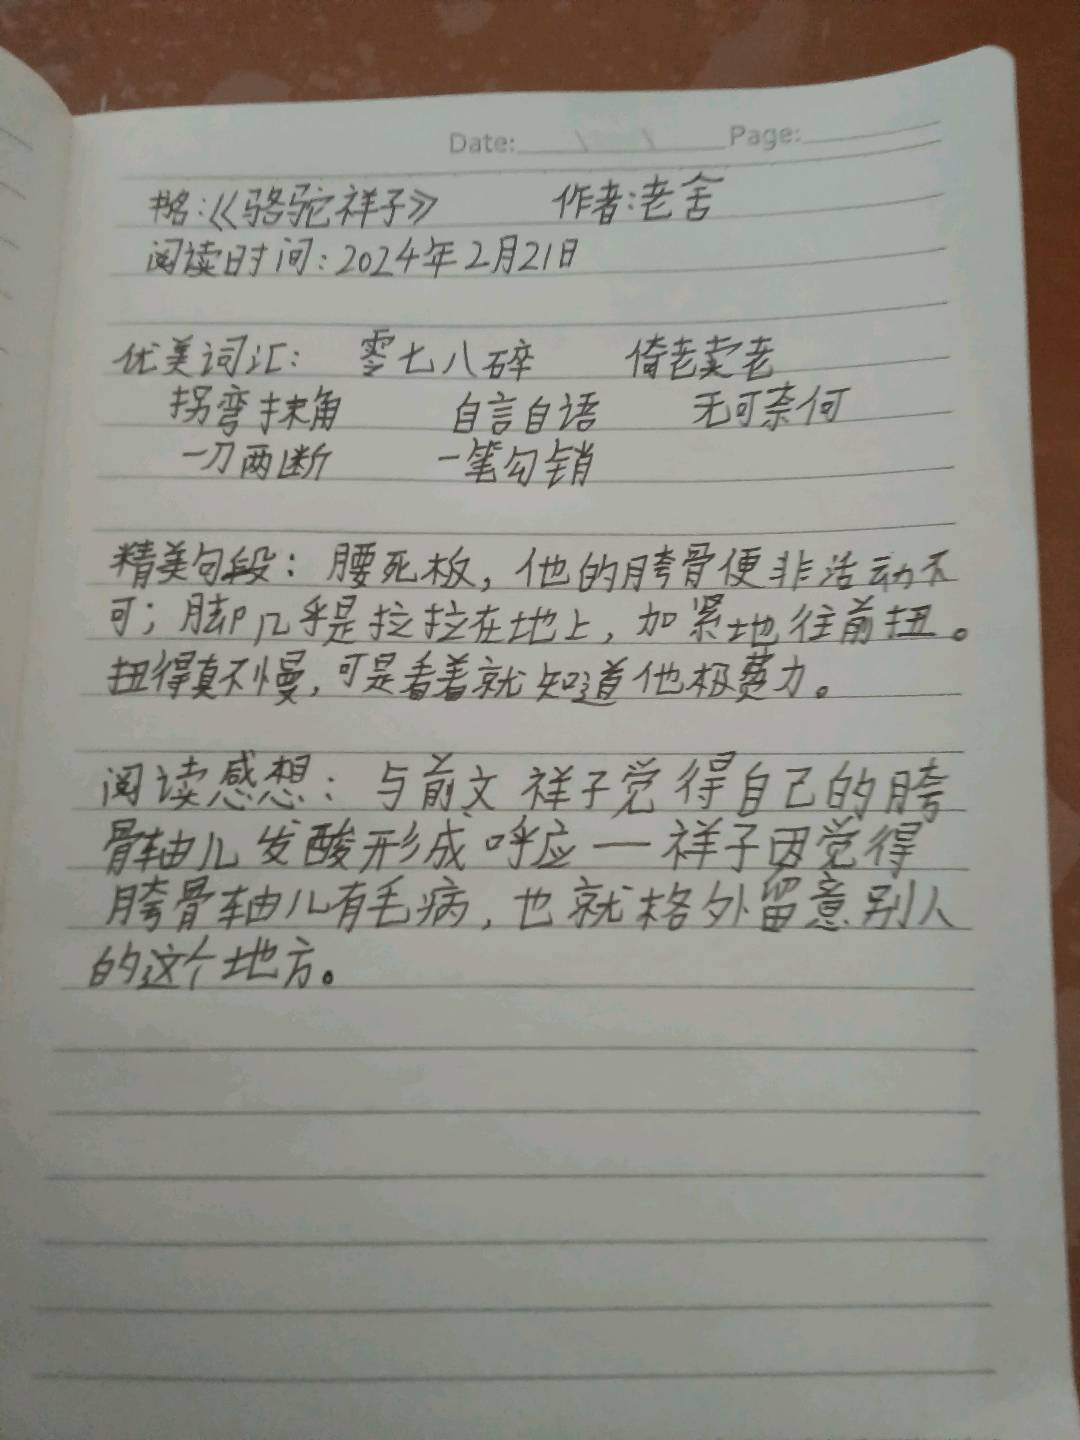 Date: Page:
书名:《骆驼祥子》 作者:老舍
阅读时间:2024年2月21日
优美词汇: 零七八碎 倚老卖老
拐弯抹角 自言自语 无可奈何
一刀两断 一笔勾销
精美句段:腰死板,他的胯骨便非活动不
可;脚几乎是拉拉在地上,加紧地往前扭。
扭得真不慢,可是看着就知道他极费力。
阅读感想:与前文祥子觉得自己的胯
骨轴儿发酸形成呼应——祥子因觉得
胯骨轴儿有毛病,也就格外留意别人
的这个地方。